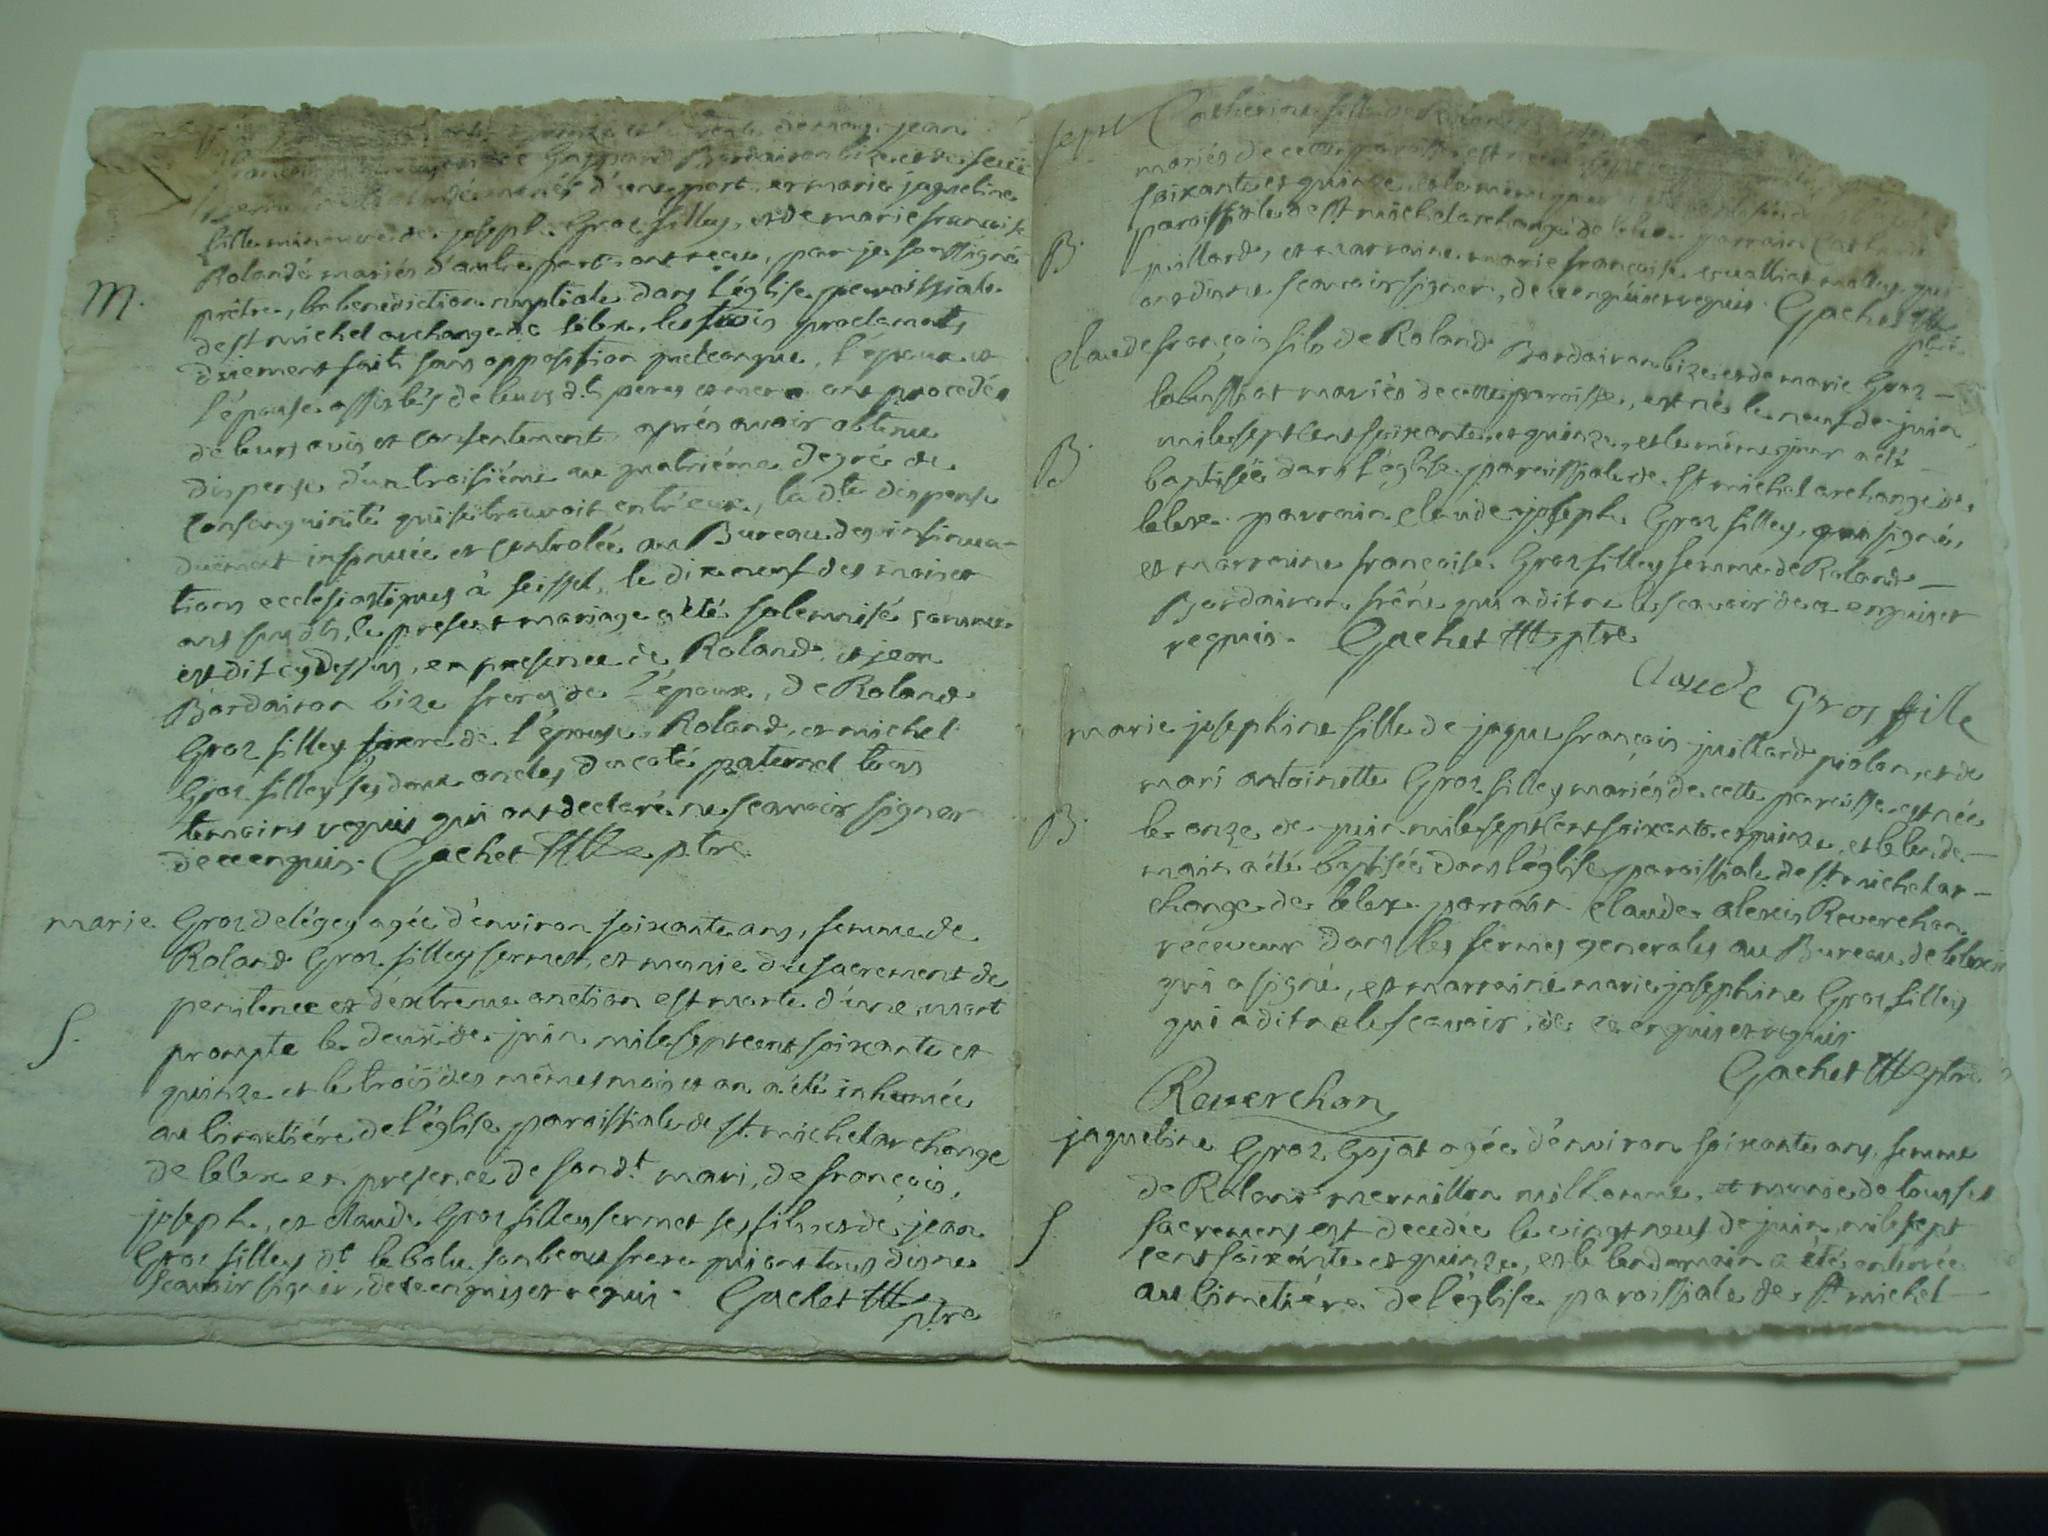 jean
d'une part, et marie jaqueline
fille mineure de joseph Groz filley, et de marie francoise
Rolandé mariés d'autre part ont reçu, par je soussigné
M. prêtre, la benediction nuptiale dans l'église paroissiale
de st michel archange de lélex, les trois proclamats
duement faits sans opposition quelconque, l'époux et
l'épouse assistés de leurs dts peres et mere ont procedés
de leurs avis et consentement après avoir obtenu
dispense d'un troisiéme au quatriéme degré de
consanguinité qui se trouvoit entr'eux, la dte dispense
duement insinuée et controlée au Bureau des insinua-
tions ecclesiastiques à seissel, le dixneuf des mois et
ans susdts, le present mariage a été solemnisé comme
est dit cy dessus, en presence de Roland, et jean
Bordairon bize freres de l'époux, de Roland
Groz filley frere de l'épouse, Roland, et michel
Groz filley ses deux oncles du coté paternel tous
temoins requis qui ont declaré ne scavoir signer
de ce enquis. Gachet ptre
marie Groz delégey agée d'environ soixante ans, femme de
Roland Groz filley fermet, et munie du sacrement de
penitence et d'extreme onction est morte d'une mort
S. prompte le deux de juin mile sept cent soixante et
quinze et le trois des mêmes mois et an a été inhumée
au cimetiére de l'église paroissiale de st. michel archange
de lélex en presence de son dt mari, de françois,
joseph, et claude Groz filley fermet ses fils et de jean
Groz filley dt le bolu son beau frere qui ont tous dis ne
scavoir signer, de ce enquis et requis. Gachet
ptre
Catherine fille de
mariés de cette paroisse est née
soixante et quinze, et le même jour
paroissiale de st michel archange de lélex parrain
B. juillard, et marraine marie françoise
ont dit ne scavoir signer, de ce enquis et requis. Gachet
ptre
claude françois fils de Roland Bordairon bize et de marie Groz
mariés de cette paroisse, est né le neuf de juin
mile sept cent soixante et quinze, et le même jour a été
B. baptisée dans l'église paroissiale de st michel archange de
lélex parrain claude joseph Groz filley, qui signé,
et marraine françoise Groz filley femme de Roland
Bordairon frêne qui a dit ne le scavoir de ce enquis et
requis. Gachet ptre
Claude Gros file
marie josephine fille de jaque françois juillard piolon, et de
mari antoinette Groz filley mariés de cette paroisse est née
B. le onze de juin mile sept cent soixante et quinze, et le lende-
main a été baptisée dans l'église paroissiale de st. michel ar-
change de lélex parrain claude alexis Reverchon
réceveur dans les fermes generales au Bureau de lélex
qui a signé, et marraine marie josephine Groz filley
qui a dit ne le scavoir, de ce enquis et requis
Gachet ptre
Reverchon
jaqueline Groz Gojat agée d'environ soixante ans, femme
de Roland mermillon milhomme, et munie de tous les
S. sacremens est decedée le vingt neuf de juin mile sept
cent soixante et quinze, et le lendemain a été enterrée
au cimetiére de l'église paroissiale de st michel